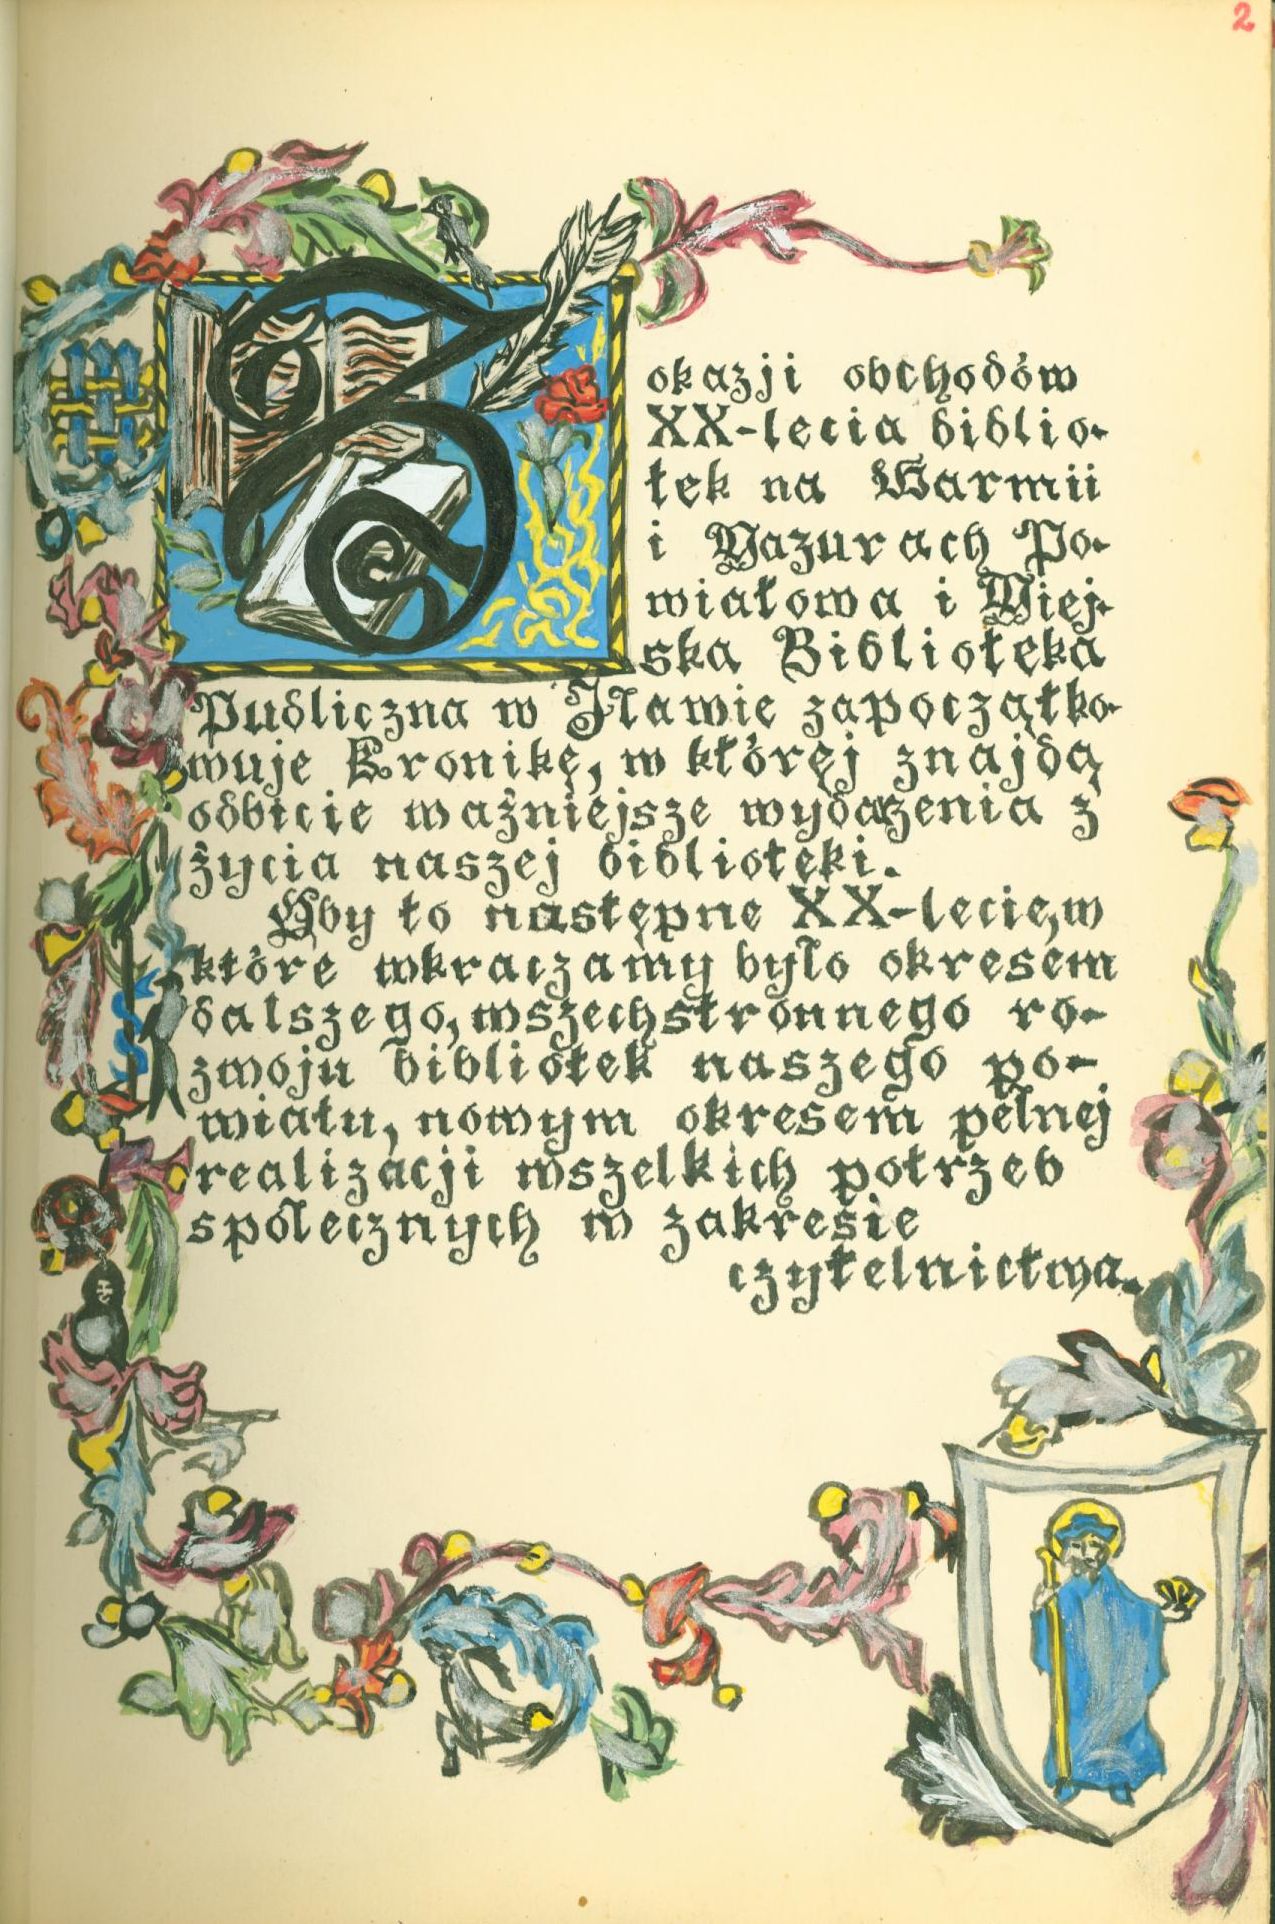 2
Z okazji obchodów
XX-lecia biblio-
tek na Warmii
i Mazurach Po-
wiatowa i Miej-
ska Biblioteka
Publiczna w Iławie zapoczątko-
wuje Kronikę, w której znajdą
odbicie ważniejsze wydarzenia z
życia naszej biblioteki.
Oby to następne XX-lecie, w
które wkraczamy było okresem
dalszego, wszechstronnego ro-
zwoju bibliotek naszego po-
wiatu, nowym okresem pełnej
realizacji wszelkich potrzeb
społecznych w zakresie
czytelnictwa.